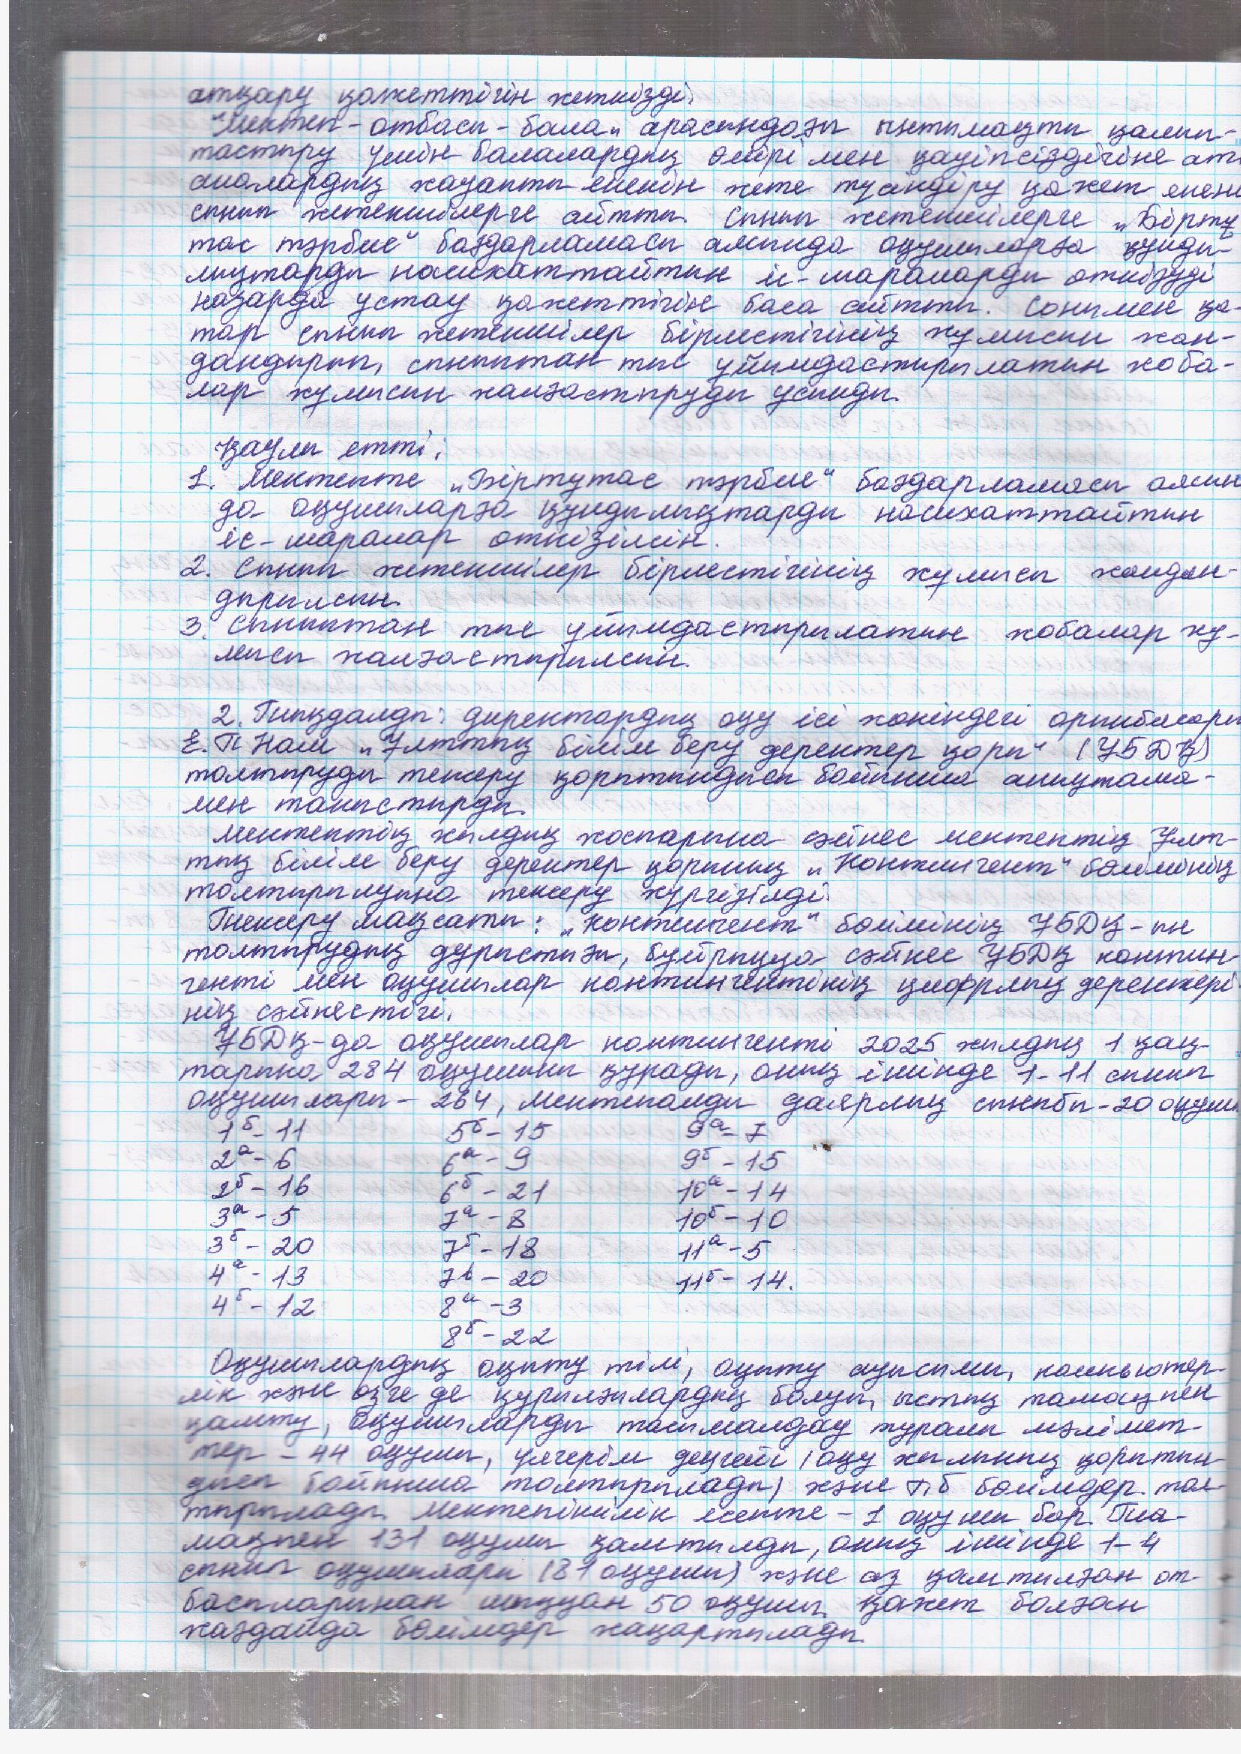 атқару қажеттігін жеткізді.
"Мектеп-отбасы-бала" арасындағы ынтымақты қалып-
тастыру үшін балалардың өмірі мен қауіпсіздігіне ата
аналардың жауапты екенін жете түсіндіру қажет екенін
сынып жетекшілерге айтты. Сынып жетекшілерге „Біртұ
тас тәрбие" бағдарламасы аясында оқушыларға құнды-
лықтарды насихаттайтын іс-шараларды өткізуді
назарда ұстау қажеттігін баса айтты. Сонымен қа-
тар сынып жетекшілер бірлестігінің жұмысын жан-
дандырып, сыныптан тыс ұйымдастырылатын жоба-
лар жұмысын жалғастыруды ұсынды.
Қаулы етті:
1. Мектепте „Біртұтас тәрбие" бағдарламасы аясын
да оқушыларға құндылықтарды насихаттайтын
іс-шаралар өткізілсін.
2. Сынып жетекшілер бірлестігінің жұмысы жандан-
дырылсын.
3. Сыныптан тыс ұйымдастырылатын жобалар жұ-
мысы жалғастырылсын.
2. Тыңдалды: директордың оқу ісі жөніндегі орынбасары
Е.П Нам „Ұлттық білім беру деректер қоры" (ҰБДҚ)
толтыруды тексеру қорытындысы бойынша анықтама-
мен таныстырды.
Мектептің жылдық жоспарына сәйкес мектептің Ұлт-
тық білім беру деректер қорының „Контингент" бөлімінің
толтырылуына тексеру жүргізілді.
Тексеру мақсаты: „Контингент" бөлімінің ҰБДҚ-ын
толтырудың дұрыстығы, бұйрыққа сәйкес ҰБДҚ контин-
генті мен оқушылар контингентінің цифрлық деректері-
нің сәйкестігі.
ҰБДҚ-да оқушылар контингенті 2025 жылдың 1 қаң-
тарына 284 оқушыны құрады, оның ішінде 1-11 сынып
оқушылары - 264, мектепалды даярлық сыныбы - 20 оқушы
1б - 11 5б - 15 9а - 7
2а - 6 6а - 9 9б - 15
2б - 16 6б - 21 10а - 14
3а - 5 7а - 8 10б - 10
3б - 20 7б - 18 11а - 5
4а - 13 7в - 20 11б - 14.
4б - 12 8а - 3
8б - 22
Оқушылардың оқыту тілі, оқыту ауысымы, компьютер-
лік және өзге де құрылғылардың болуы, ыстық тамақпен
қамту, оқушыларды тасымалдау туралы мәлімет-
тер - 44 оқушы, үлгерім деңгейі (оқу жылының қорытын-
дысы бойынша толтырылады) және т.б бөлімдер тол-
тырылады. Мектепішілік есепте - 1 оқушы бар. Та-
мақпен 131 оқушы қамтылды, оның ішінде 1-4
сынып оқушылары (81 оқушы) және аз қамтылған от-
басыларынан шыққан 50 оқушы. Қажет болған
жағдайда бөлімдер жаңартылады.